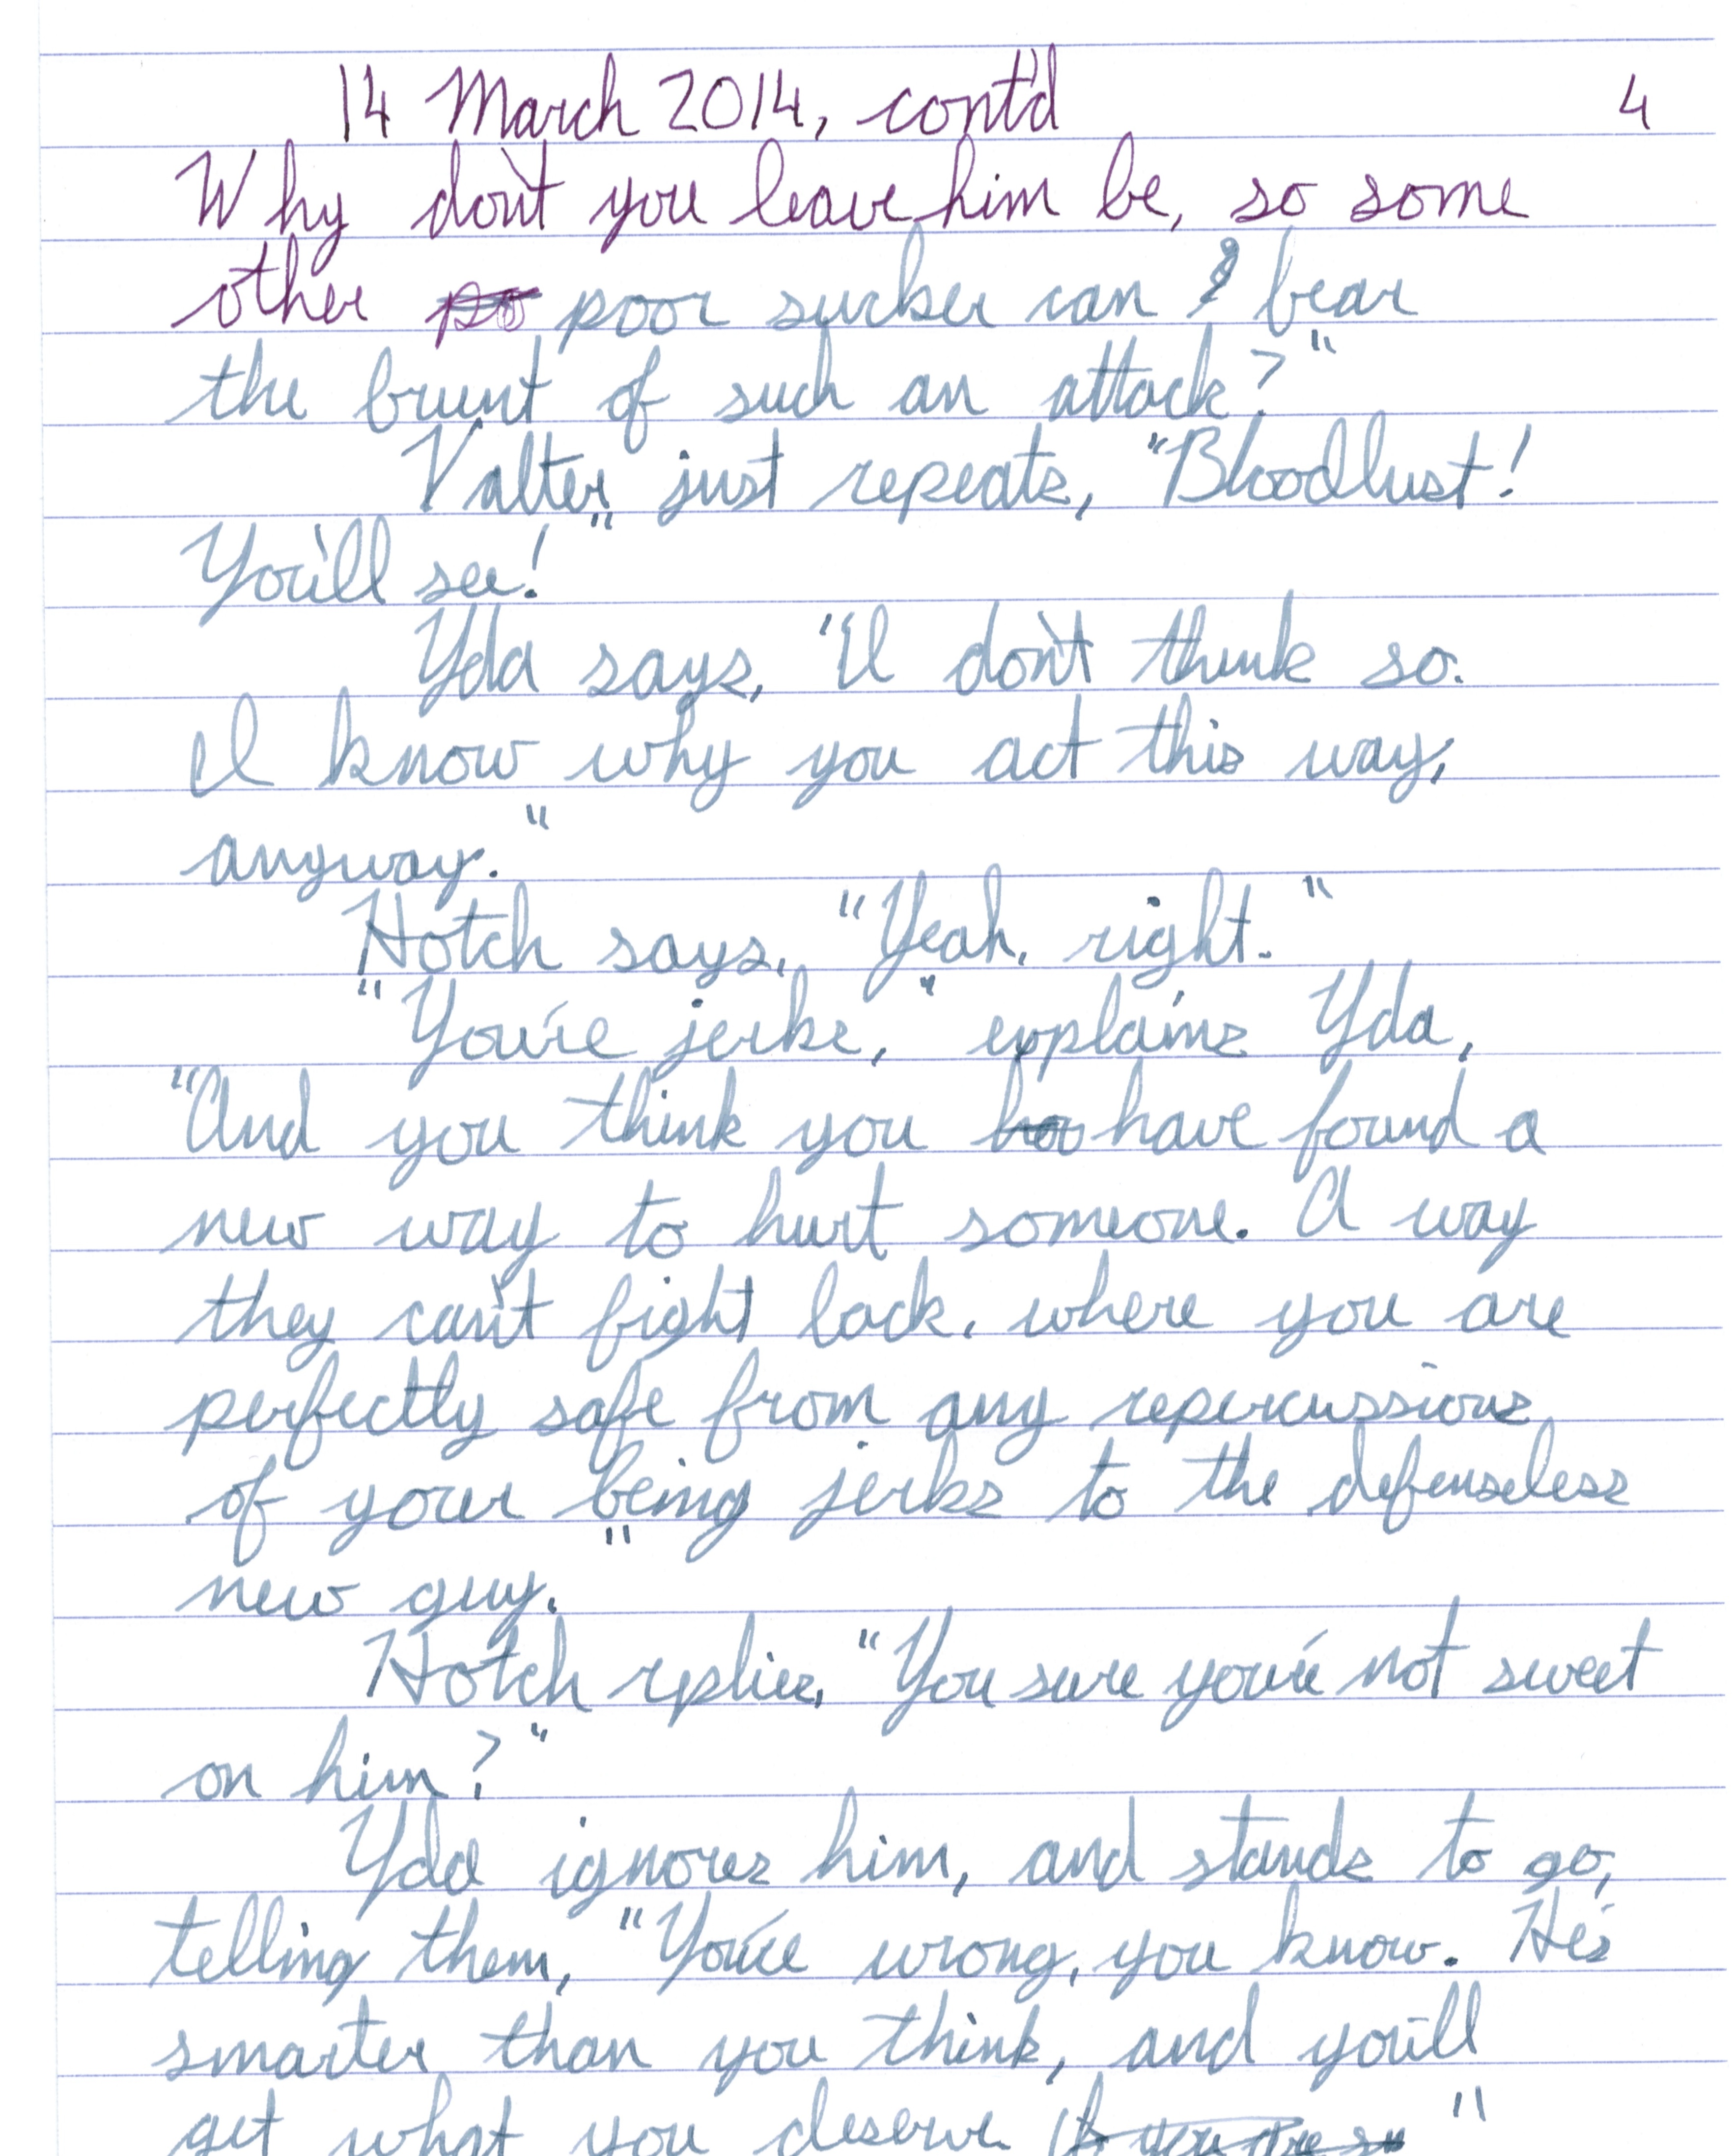 14 March 2014, cont'd 4
Why don't you leave him be, so some
other po poor sucker can bear
the brunt of such an attack?"
Valter just repeats, "Bloodlust!
You'll see!"
Yda says, "I don't think so.
I know why you act this way,
anyway."
Hotch says, "Yeah, right."
"You're jerks," explains Yda,
"And you think you ha have found a
new way to hurt someone. A way
they can't fight back, where you are
perfectly safe from any repercussions
of your being jerks to the defenseless
new guy."
Hotch rplies, "You sure you're not sweet
on him?"
Yda ignores him, and stands to go,
telling them, "You're wrong, you know. He's
smarter than you think, and you'll
get what you deserve "